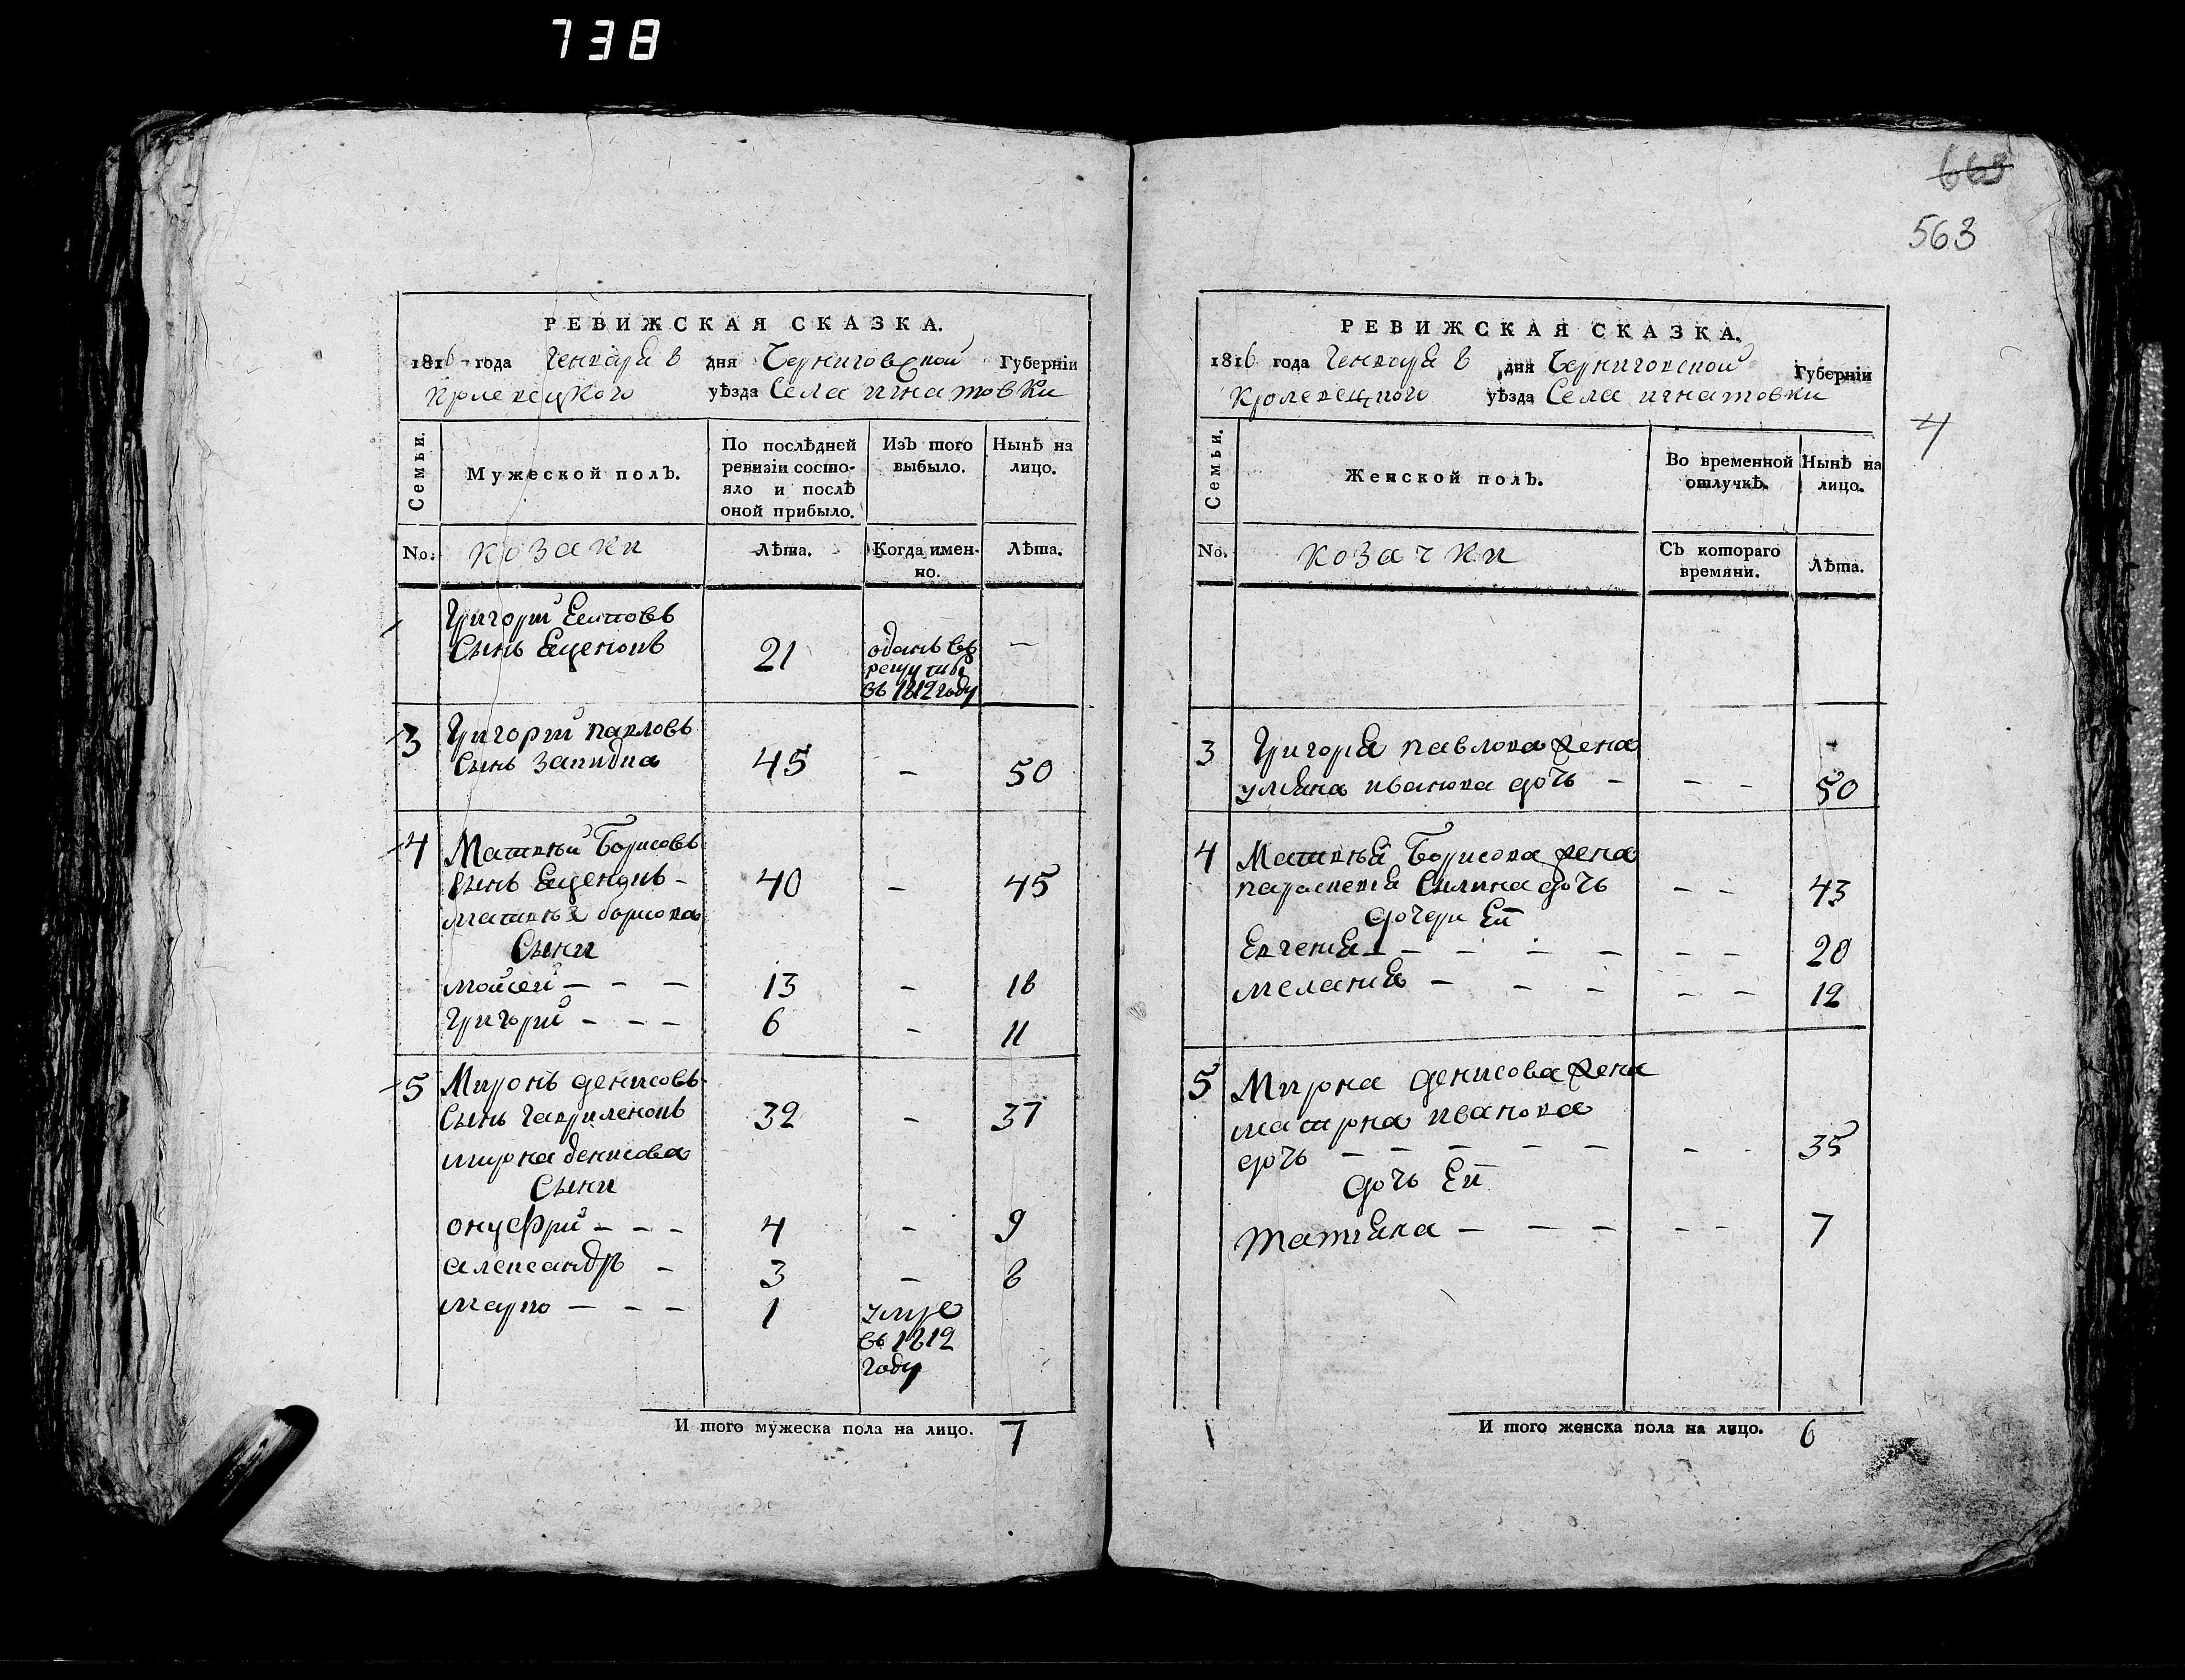 738
663
563
4
РЕВИЖСКАЯ СКАЗКА.
1816 года Генваря 8 дня Черниговской Губерніи
Кролевецкого уѣзда Села игнатовки
Семьи.
Мужеской полъ.
По послѣдней ревизіи состояло и послѣ оной прибыло.
Изъ того выбыло.
Нынѣ на лицо.
No.
козаки
Лѣта.
Когда именно.
Лѣта.
Григорій
Сынъ Еценокъ 21 —
въ 1812 году
3 Григорій павловъ
Сынъ 45 — 50
4 Матвѣй Борисовъ
Сынъ Еценокъ — 40 — 45
матвѣя борисова
Сыни
мойсей — — — 13 — 18
григорій — — — 6 — 11
5 Миронъ денисовъ
Сынъ гавриленокъ 32 — 37
мирона денисова
Сыни
онуфрій — — — 4 — 9
александръ — 3 — 8
марко — — — 1 умре
въ 1812
году
И того мужеска пола на лицо. 7
РЕВИЖСКАЯ СКАЗКА.
1816 года Генваря 8 дня Черниговской Губерніи
Кролевецкого уѣзда Села игнатовки
Семьи.
Женской полъ.
Во временной отлучкѣ.
Нынѣ на лицо.
No.
козачки
Съ котораго времяни.
Лѣта.
3 Григорія павлова жена
уляна иванова дочь — — — 50
4 Матвѣя Борисова жена
параскевія Силина дочь — — 43
дочери Еи
Евгенія — — — — — — 20
меланія — — — — — 12
5 Мирона денисова жена
матрона иванова
дочь — — — — — - 35
дочь Еи
татіяна — — — — — 7
И того женска пола на лицо. 6